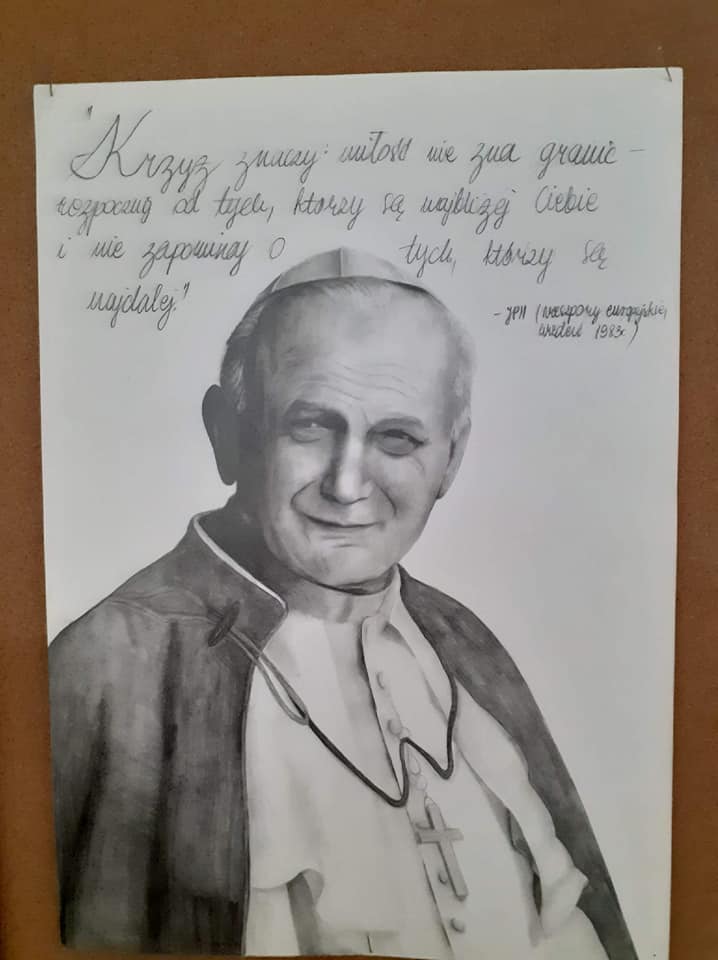 "Krzyż znaczy: miłość nie zna granic –
rozpocznij od tych, którzy są najbliżej Ciebie
i nie zapominaj o tych, którzy są
najdalej."
- JPII (nieszpory europejskie,
Wiedeń 1983r)